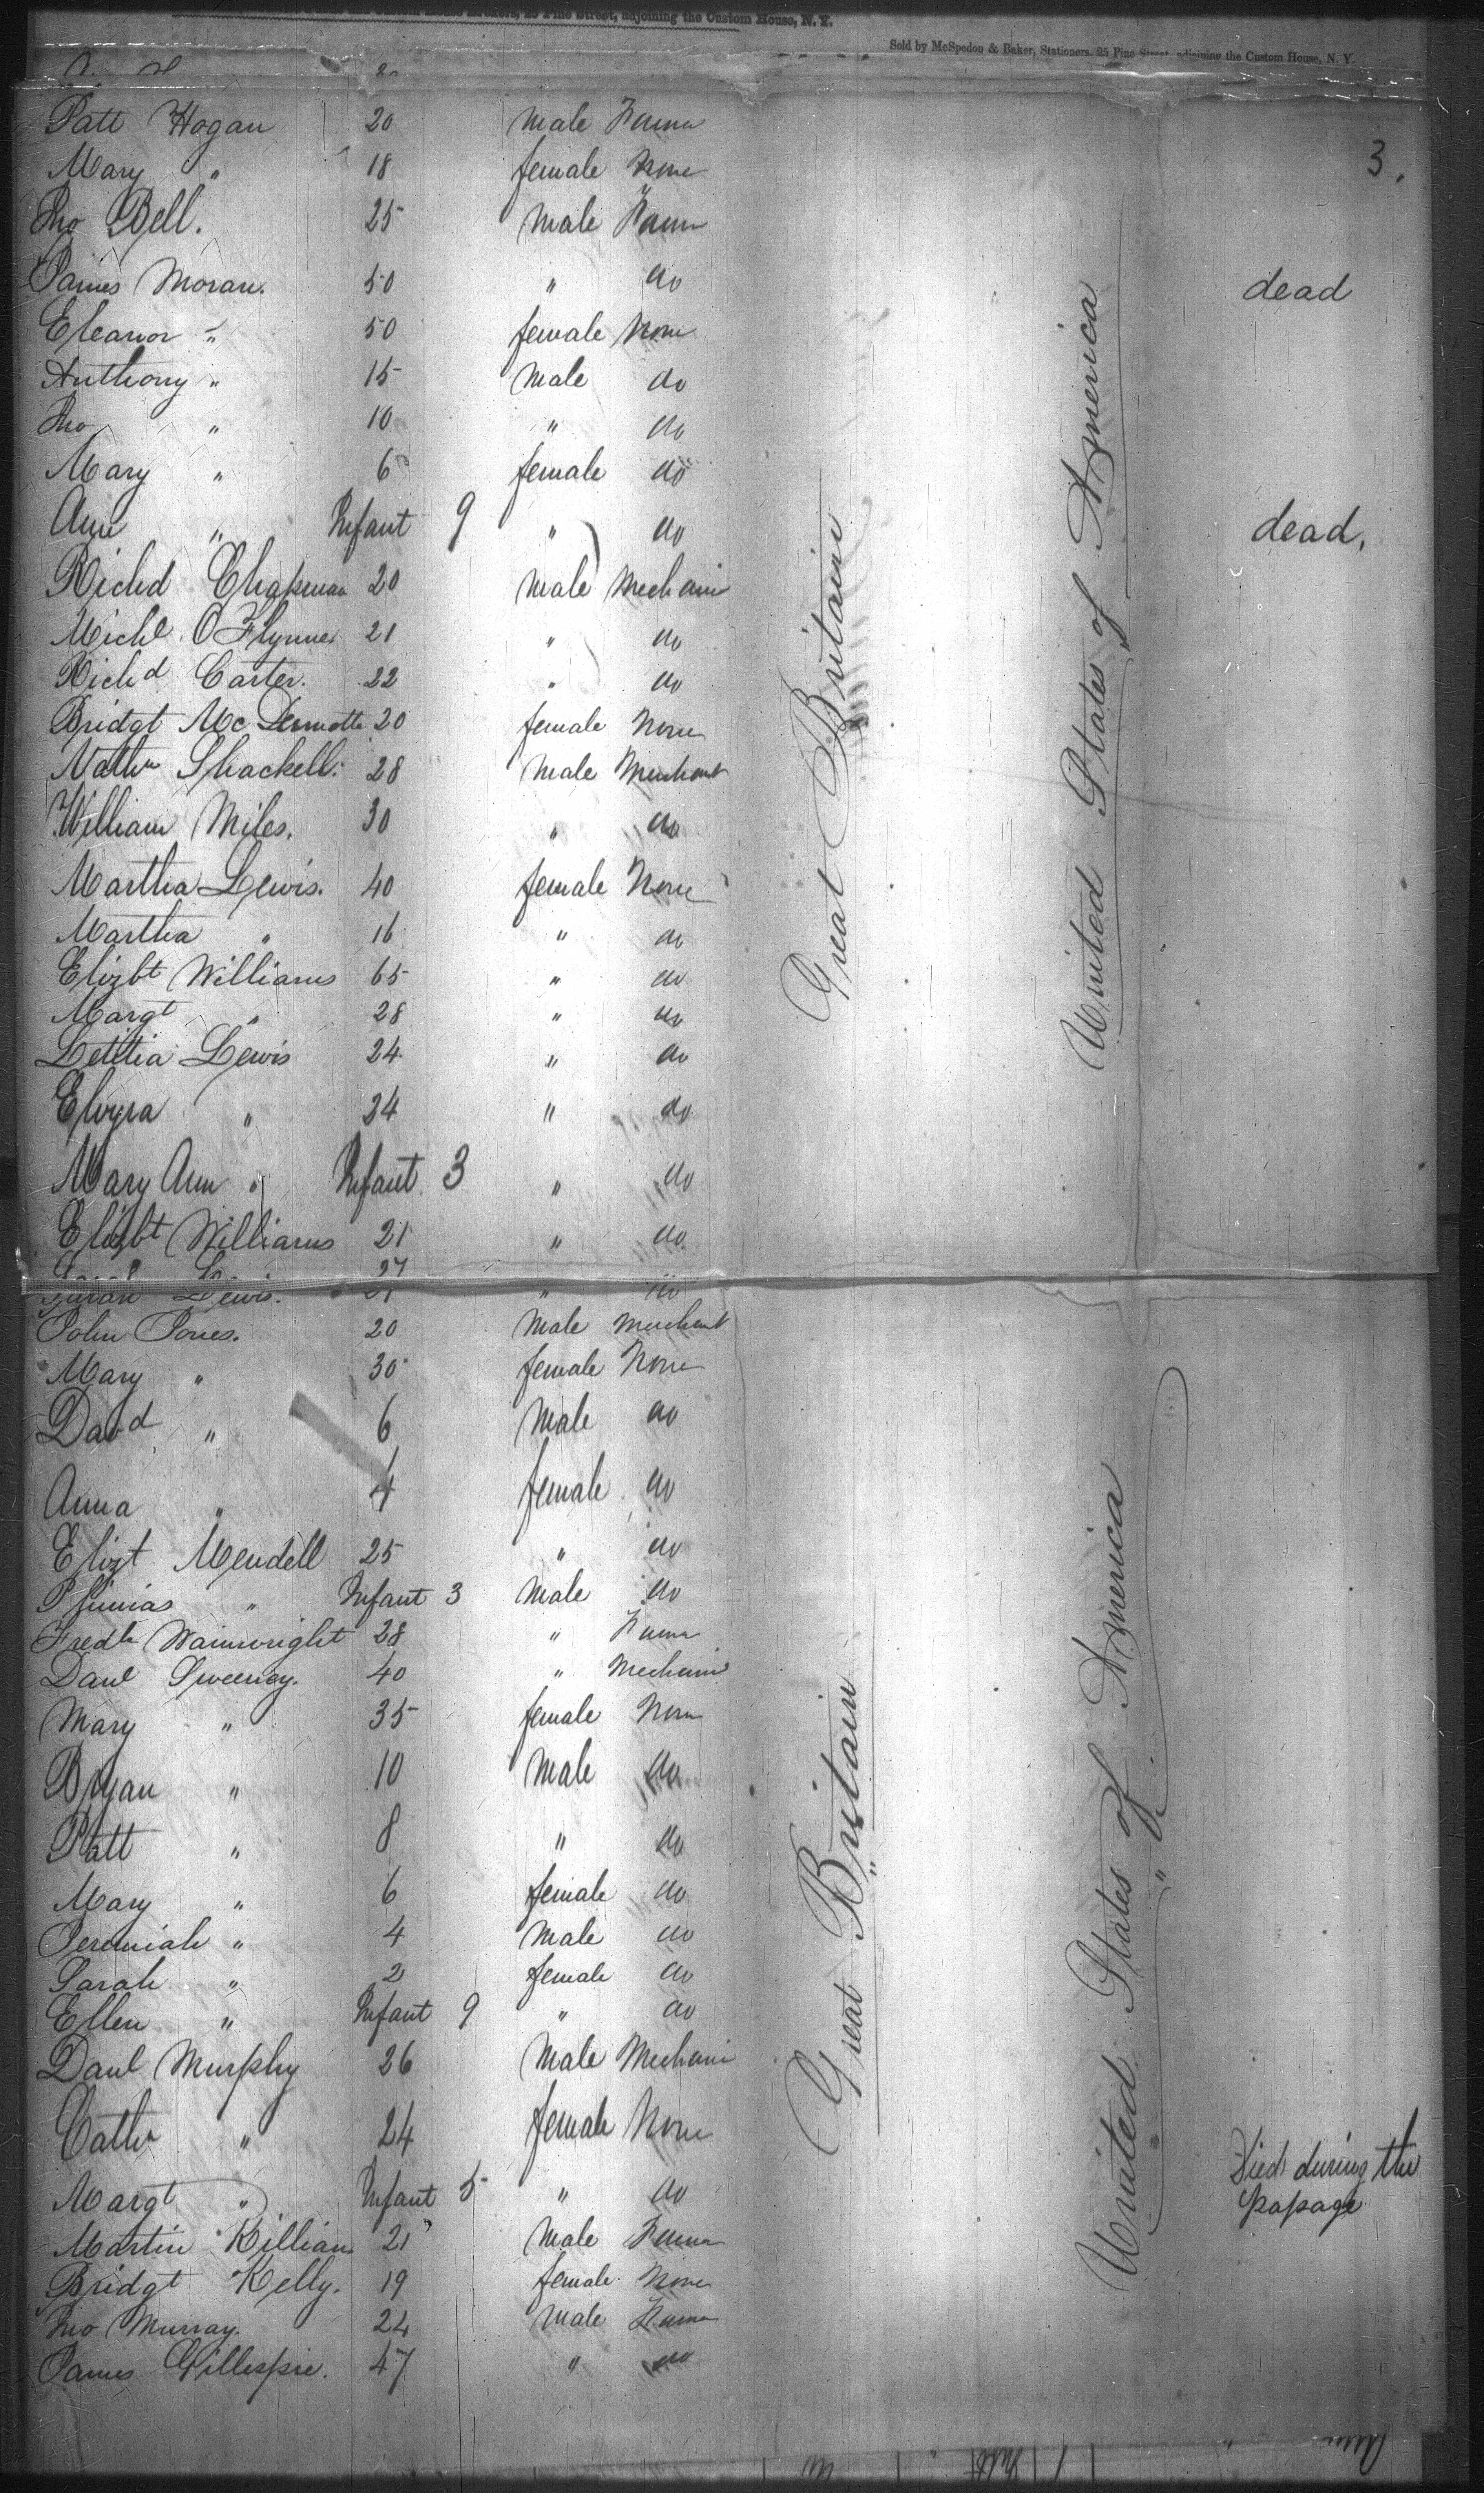 adjoining the Custom House, N.Y.
Sold by McSpedon & Baker, Stationers, 25 Pine Street, adjoining the Custom House, N. Y.
3.
Patt Hogan 20 male Farmer
Mary " 18 female None
Jno Bell. 25 male Farmer
James Moran. 50 " do dead
Eleanor " 50 female None
Anthony " 15 male do
Jno " 10 " do
Mary " 6 female do
Ann " Infant 9 " do dead,
Richd Chapman 20 male Mechanic
Michl O'Flynne 21 " do
Richd Carter. 22 " do
Bridgt McDermott 20 female None
Nathn Shackell. 28 male Merchant
William Miles. 30 " do
Martha Lewis. 40 female None
Martha " 16 " do
Elizbt Williams 65 " do
Margt " 28 " do
Letitia Lewis 24 " do
Elvyra " 24 " do
Mary Ann " Infant 3 " do
Elizbt Williams 21 " do
Great Britain
United States of America
Sarah Lewis. 27 " do
John Jones. 20 male merchant
Mary " 30 female None
David " 6 male do
Anna " 4 female do
Elizt Mendell 25 " do
" Infant 3 male do
Fredk Wainwright 28 " Farmer
Danl Sweeney. 40 " Mechanic
Mary " 35 female None
Bryan " 10 male do
Patt " 8 " do
Mary " 6 female do
Jeremiah " 4 male do
Sarah " 2 female do
Ellen " Infant 9 " do
Danl Murphy 26 male Mechanic
Cathn " 24 female None
Margt " Infant 5 " do Died during the passage
Martin Killian 21 male Farmer
Bridgt Kelly. 19 female None
Jno Murray. 24 male Farmer
James Gillespie. 47 " do
Great Britain
United States of America